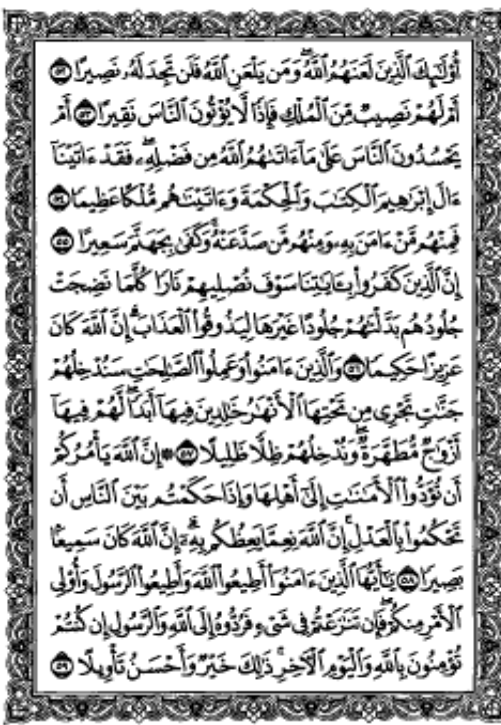 أُوْلَٰٓئِكَ ٱلَّذِينَ لَعَنَهُمُ ٱللَّهُۖ وَمَن يَلْعَنِ ٱللَّهُ فَلَن تَجِدَ لَهُۥ نَصِيرًا ۝٥٢
أَمْ لَهُمْ نَصِيبٌ مِّنَ ٱلْمُلْكِ فَإِذًا لَّا يُؤْتُونَ ٱلنَّاسَ نَقِيرًا ۝٥٣ أَمْ
يَحْسُدُونَ ٱلنَّاسَ عَلَىٰ مَآ ءَاتَىٰهُمُ ٱللَّهُ مِن فَضْلِهِۦۖ فَقَدْ ءَاتَيْنَآ
ءَالَ إِبْرَٰهِيمَ ٱلْكِتَٰبَ وَٱلْحِكْمَةَ وَءَاتَيْنَٰهُم مُّلْكًا عَظِيمًا ۝٥٤
فَمِنْهُم مَّنْ ءَامَنَ بِهِۦ وَمِنْهُم مَّن صَدَّ عَنْهُۚ وَكَفَىٰ بِجَهَنَّمَ سَعِيرًا ۝٥٥
إِنَّ ٱلَّذِينَ كَفَرُواْ بِـَٔايَٰتِنَا سَوْفَ نُصْلِيهِمْ نَارًا كُلَّمَا نَضِجَتْ
جُلُودُهُم بَدَّلْنَٰهُمْ جُلُودًا غَيْرَهَا لِيَذُوقُواْ ٱلْعَذَابَۗ إِنَّ ٱللَّهَ كَانَ
عَزِيزًا حَكِيمًا ۝٥٦ وَٱلَّذِينَ ءَامَنُواْ وَعَمِلُواْ ٱلصَّٰلِحَٰتِ سَنُدْخِلُهُمْ
جَنَّٰتٍ تَجْرِى مِن تَحْتِهَا ٱلْأَنْهَٰرُ خَٰلِدِينَ فِيهَآ أَبَدًاۖ لَّهُمْ فِيهَآ
أَزْوَٰجٌ مُّطَهَّرَةٌۖ وَنُدْخِلُهُمْ ظِلًّا ظَلِيلًا ۝٥٧ ۞ إِنَّ ٱللَّهَ يَأْمُرُكُمْ
أَن تُؤَدُّواْ ٱلْأَمَٰنَٰتِ إِلَىٰٓ أَهْلِهَا وَإِذَا حَكَمْتُم بَيْنَ ٱلنَّاسِ أَن
تَحْكُمُواْ بِٱلْعَدْلِۚ إِنَّ ٱللَّهَ نِعِمَّا يَعِظُكُم بِهِۦٓۗ إِنَّ ٱللَّهَ كَانَ سَمِيعًۢا
بَصِيرًا ۝٥٨ يَٰٓأَيُّهَا ٱلَّذِينَ ءَامَنُوٓاْ أَطِيعُواْ ٱللَّهَ وَأَطِيعُواْ ٱلرَّسُولَ وَأُوْلِى
ٱلْأَمْرِ مِنكُمْۖ فَإِن تَنَٰزَعْتُمْ فِى شَىْءٍ فَرُدُّوهُ إِلَى ٱللَّهِ وَٱلرَّسُولِ إِن كُنتُمْ
تُؤْمِنُونَ بِٱللَّهِ وَٱلْيَوْمِ ٱلْءَاخِرِۚ ذَٰلِكَ خَيْرٌ وَأَحْسَنُ تَأْوِيلًا ۝٥٩